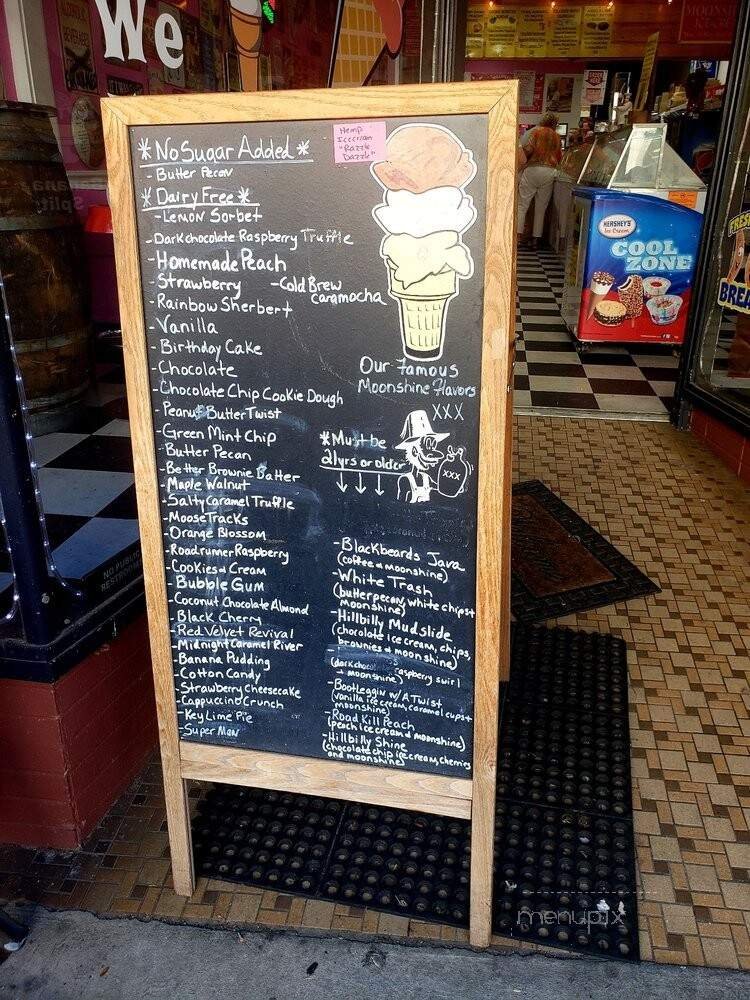 We
Hemp
Icecream
"Razzle
Dazzle"
*No Sugar Added*
- Butter Pecan
*Dairy Free*
- Lemon Sorbet
- Dark chocolate Raspberry Truffle
- Homemade Peach
- Strawberry
- Cold Brew
caramocha
- Rainbow Sherbert
- Vanilla
- Birthday Cake
- Chocolate
- Chocolate Chip Cookie Dough
- Peanut Butter Twist
- Green Mint Chip
- Butter Pecan
- Better Brownie Batter
- Maple Walnut
- Salty Caramel Truffle
- Moose Tracks
- Orange Blossom
- Roadrunner Raspberry
- Cookies & Cream
- Bubble Gum
- Coconut Chocolate Almond
- Black Cherry
- Red Velvet Revival
- Midnight Caramel River
- Banana Pudding
- Cotton Candy
- Strawberry Cheesecake
- Cappuccino Crunch
- Key Lime Pie
- Super Man
Our Famous
Moonshine Flavors
XXX
*Must be
21yrs or older
XXX
- Blackbeards Java
(coffee & moonshine)
- White Trash
(butter pecan, white chips &
moonshine)
- Hillbilly Mudslide
(chocolate ice cream, chips,
brownies & moonshine)
raspberry swirl
& moonshine)
- Bootleggin w/ A Twist
(vanilla ice cream, caramel cups &
moonshine)
- Road Kill Peach
(peach ice cream & moonshine)
- Hillbilly Shine
(chocolate chip ice cream, cherries
and moonshine)
HERSHEY'S
Ice Cream
COOL
ZONE
NO PUBLIC
RESTROOMS
menupix